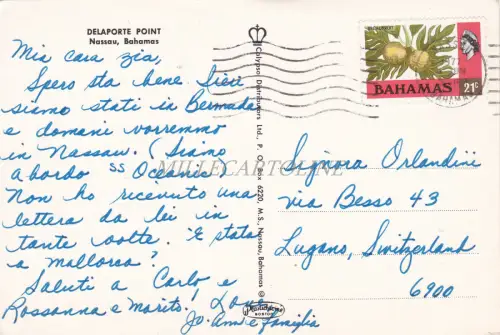 DELAPORTE POINT
Nassau, Bahamas
Mia cara zia,
Spero sta bene. Ieri
siamo stati in Bermuda
e domani vorremmo
in Nassau. (Siamo
a bordo SS Oceanic)
Non ho ricevuto una
lettera da lei in
tante volte. E stata
a mallorca?
Saluti a Carlo, e
Rossanna e marito. Love
Jo Ann e famiglia
Calypso Distributors Ltd., P. O. Box 6220, M.S., Nassau, Bahamas ©
BOSTON
BAHAMAS 21c
Signora Orlandini
via Besso 43
Lugano, Switzerland
6900
MILLECARTOLINE